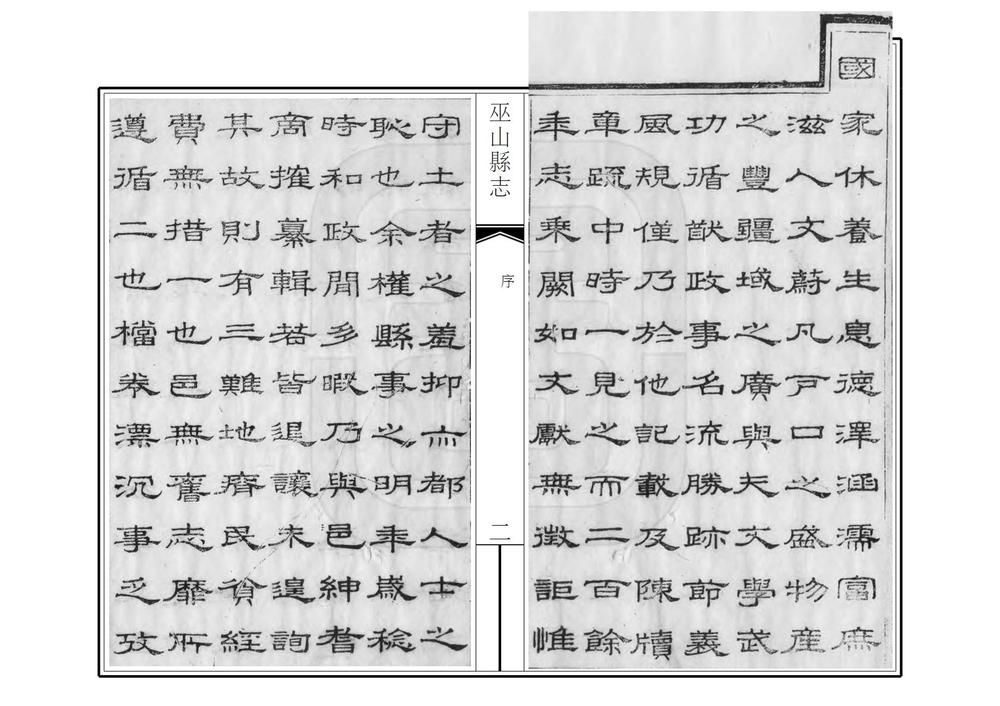 國
家休養生息德澤涵濡富庶
滋人文蔚凡戶口之盛物產
之豐疆域之廣與夫文學武
功循猷政事名流勝跡節義
風規僅乃於他記載及陳牘
單疏中時一見之而二百餘
年志乘闕如文獻無徵詎惟
巫山縣志
序
二
守土者之羞抑亦都人士之
恥也余權縣事之明年歲稔
時和政閒多暇乃與邑紳耆
商搉纂輯若皆退讓未遑詢
其故則有三難地瘠民貧經
費無措一也邑無舊志靡所
遵循二也檔券漂沉事乏攷